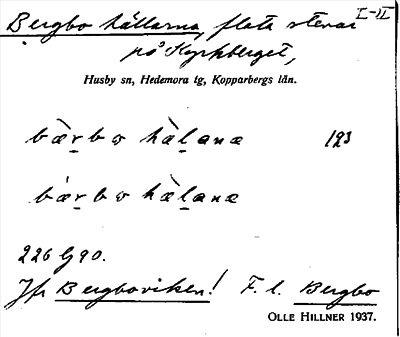 I-II
Bergbo hällarna, flata stenar
på Kyrkberget,
Husby sn, Hedemora tg, Kopparbergs län.
bæ̀rbω hæ̀lanæ 193
bæ̀rbω hæ̀lanæ
226 G 90.
Jfr Bergboviken! F. l. Bergbo
OLLE HILLNER 1937.